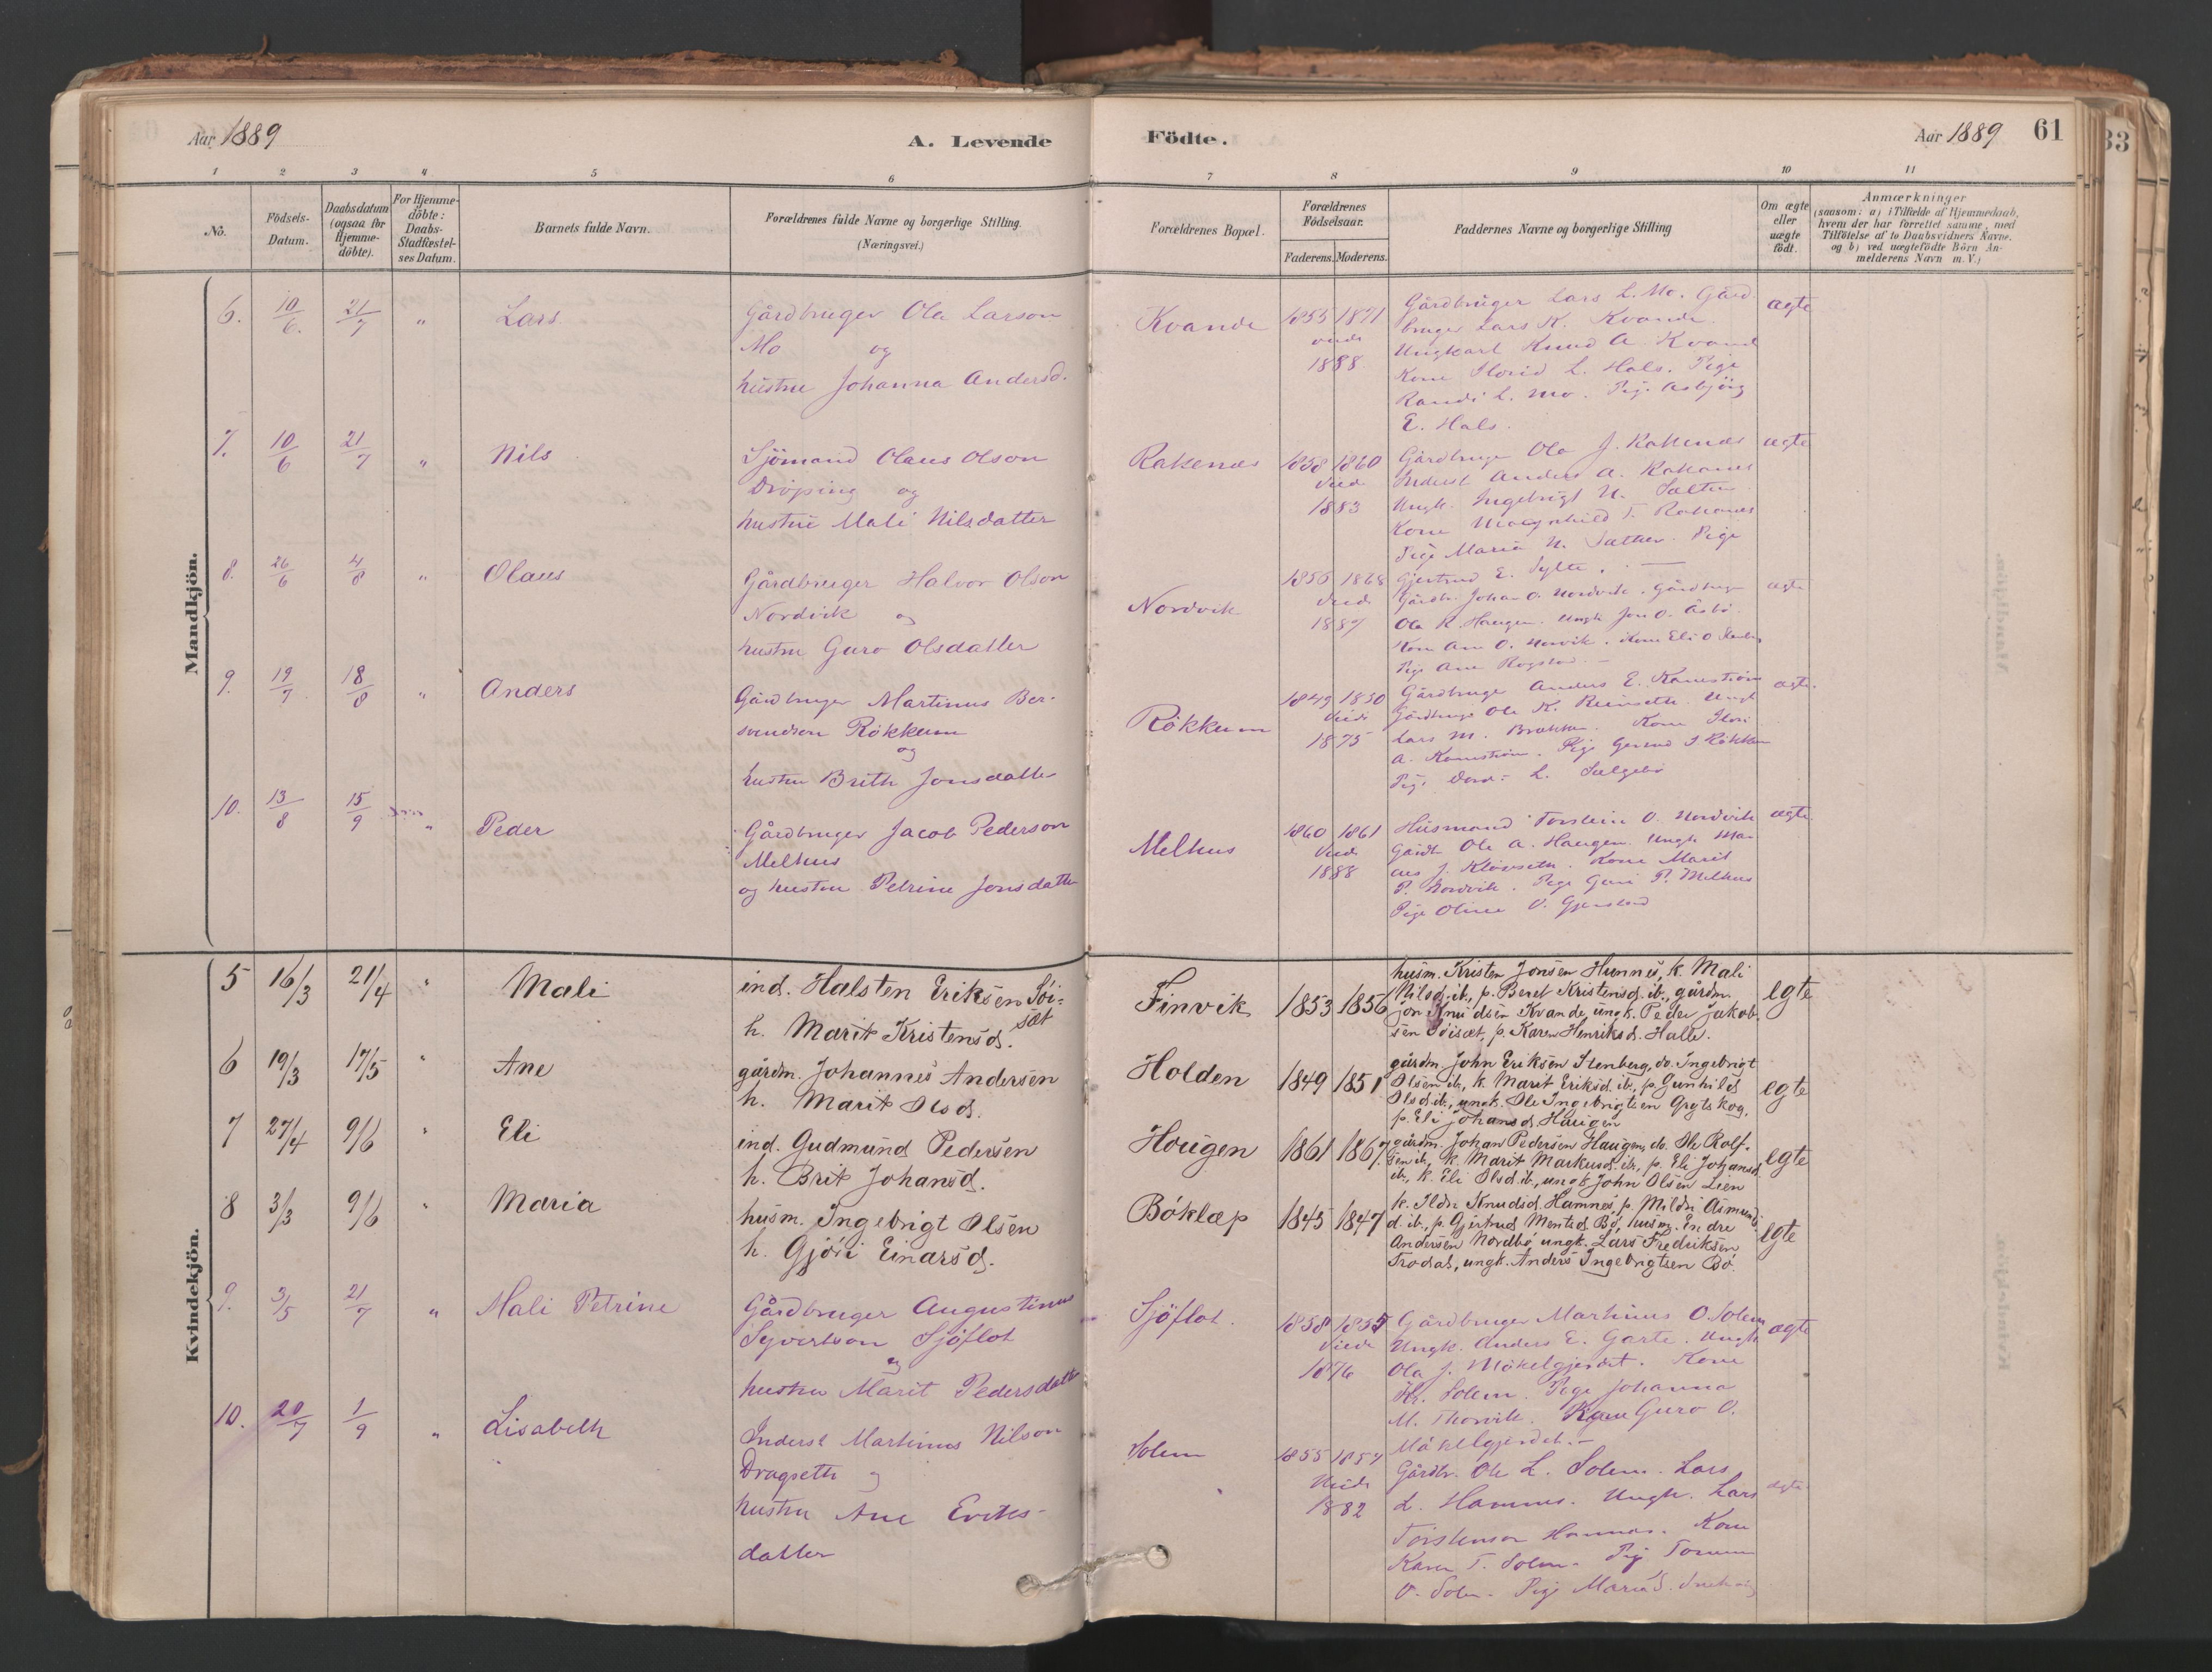 Aar 1889
A. Levende
Födte.
Aar 1889
61
33
1 2 3 4 5 6 7 8 9 10 11
No.
Födsels-
Datum.
Daabsdatum
(ogsaa for
Hjemme-
döbte).
For Hjemme-
döbte:
Daabs-
Stadfæstel-
ses Datum.
Barnets fulde Navn.
Forældrenes fulde Navne og borgerlige Stilling.
(Næringsvei.)
Forældrenes Bopæl.
Forældrenes
Födselsaar.
Faderens. Moderens.
Faddernes Navne og borgerlige Stilling
Om ægte
eller
uægte
födt.
Anmærkninger
(saasom: a) i Tilfælde af Hjemmedaab,
hvem der har forrettet samme, med
Tilföielse af to Daabsvidners Navne.
og b) ved uægtefödte Börn An-
melderens Navn m. V.)
Mandkjön.
6. 10/6. 21/7 " Lars
Gårdbruger Ola Larson
Mo og
hustru Johanna Andersd.
Kvande
1855 1871
viede
1888
Gårdbruger Lars L. Mo. Gård
bruger Lars K. Kvande
Ungkarl Knud A. Kvand
Kone L. Hals. Pige
Randi L. Mo. Pige Asbjörg
E. Hals.
ægte
7. 10/6 21/7 " Nils
Sjömand Olaus Olson
Dröping og
hustru Mali Nilsdatter
Rakenæs
1858 1860
Viede
1883
Gårdbruger Ola J. Rakenæs
Inderst Anders A. Rakanes
Ungk. Ingebrigt N. Sæter
Kone Magnhild T. Rakanes
Pige Maria N. Sæther. Pige
Gjertrud E. Sylte.
ægte
8. 26/6 4/8 " Olaus
Gårdbruger Halvor Olson
Nordvik og
hustru Guro Olsdatter
Nordvik
1856 1868
Viede
1887
Gårdb. Johan O. Nordvik. Gårdbruger
Ola K. Haugen. Ungk Jon O. Åsbö
Kone Ane O. Norvik. Kone Eli O.
Pige Ane Rogstad.
ægte
9. 19/7 18/8 " Anders
Gårdbruger Martinus Ber-
svendson Rökkum
og
hustru Brith Jonsdatter
Rökkum
1849 1850
Viede
1875
Gårdbruger Anders E. Kamström
Gårdbruger Ole K. Reinseth. Ungk
Lars M. Brække. Kone
A. Kamström. Pige J Rökkum
Pige L. Sælgebö
ægte
10. 13/8 15/9 " Peder
Gårdbruger Jacob Pederson
Melhus
og hustru Petrine Jonsdatter
Melhus
1860 1861
Viede
1888
Husmand Torstein O. Nordvik
Gårdb Ole A. Haugen. Ungk Mar
J. Klövseth. Kone Marit
P. Nordvik. Pige Guri P. Melhus
Pige Oline O.
ægte
Kvindekjön.
5 16/3 21/4 " Mali
ind. Halsten Eriksen Söi-
sæt
h. Marit Kristensd.
Finvik 1853 1856
husm. Kristen Jonsen Hamnes, k. Mali
Nilsd. ib., p. Beret Kristensd. ib., gårdm.
Jon Knudsen Kvande, ungk. Peder Jakob-
sen Söisæt, p. Karen Henriksd. Halle.
egte
6 19/3 17/5 " Ane
gårdm. Johannes Andersen
h. Marit Olsd.
Holden 1849 1851
gårdm. John Eriksen Stenberg, do. Ingebrigt
Olsen ib., k. Marit Eriksd. ib., p. Gunhild
Olsd. ib., ungk. Ole Ingebrigtsen Grytskog,
p. Eli Johansd. Haugen
egte
7 27/4 9/6 " Eli
ind. Gudmund Pedersen
h. Brit Johansd.
Hougen 1861 1867
gårdm. Johan Pedersen Haugen, do. Ole Rolf-
sen ib., k. Marit Markusd. ib., p. Eli Johansd.
ib., k. Eli Olsd. ib., ungk. John Olsen Lien
egte
8 3/3 9/6 " Maria
husm. Ingebrigt Olsen
h. Gjöri Einarsd.
Böklæp 1845 1847
k. Ildri Knudsd. Hamnes, p. Mildri Asmunds-
d. ib., p. Gjertrud Mentsd. Bö, husm. Endre
Andersen Nordbö, ungk. Lars Fredriksen
Trodal, ungk. Anders Ingebrigtsen Bö.
egte
9. 3/5 21/7 " Mali Petrine
Gårdbruger Augustinus
Syvertson Sjöflot
og
hustru Marit Pedersdatter
Sjöflot.
1858 1855
Viede
1876
Gårdbruger Martinus O. Solem
Ungk. Anders E. Garte. Ungk
Ola J. Mökelgjerdet. Kone
Solem. Pige Johanna
M. Thorvik. Kone Guro O.
Mökelgjerdet.
ægte
10. 20/7 1/9 " Lisabeth
Inderst Martinus Nilson
Dragseth og
hustru Ane Eriks-
datter
Solem
1855 1857
Viede
1882
Gårdbr. Ole L. Solem. Lars
L. Hamnes. Ungk. Lars
Torstenson Hamnes. Kone
Karen T. Solem. Pige
O. Solem. Pige Maria S.
ægte